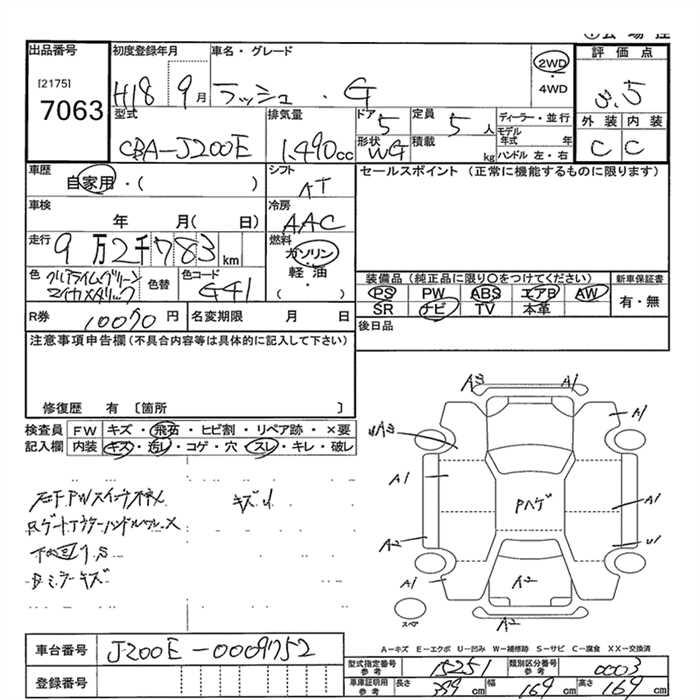 出品番号
[2175]
7063
初度登録年月
H18 9月
車名・グレード
ラッシュ . G
2WD
・
4WD
評価点
3.5
外装 内装
C C
型式
CBA-J200E
排気量
1,490cc
ドア 5
定員 5人
形状 WG
積載 kg
ディーラー・並行
モデル年式 年
ハンドル 左・右
車歴
自家用・( )
シフト
AT
セールスポイント (正常に機能するものに限ります)
車検
年 月( 日)
冷房
AAC
走行
9万2千783km
燃料
ガソリン
・
軽油
・
( )
色
色替
色コード
G41
装備品(純正品に限り〇をつけてください)
PS PW ABS エアB AW
SR ナビ TV 本革
新車保証書
有・無
R券 10070円
名変期限 月 日
後日品
注意事項申告欄(不具合内容等は具体的に記入して下さい)
修復歴 有 〔箇所 〕
検査員 FW キズ・飛石・ヒビ割・リペア跡・×要
記入欄 内装 キズ・汚レ・コゲ・穴・スレ・キレ・破レ
キズU
下回りS
Bミラーキズ
A3 A1
A1
A1
A1
A2
Pハゲ
U1
A1
A2
A2
スペア
A-キズ E-エクボ U-凹み W-補修跡 S-サビ C-腐食 XX-交換済
車台番号 J200E-0009752
登録番号
型式指定番号 参考 15251
類別区分番号 参考 0003
車庫証明用 参考 長さ 399cm 幅 169cm 高さ 169cm